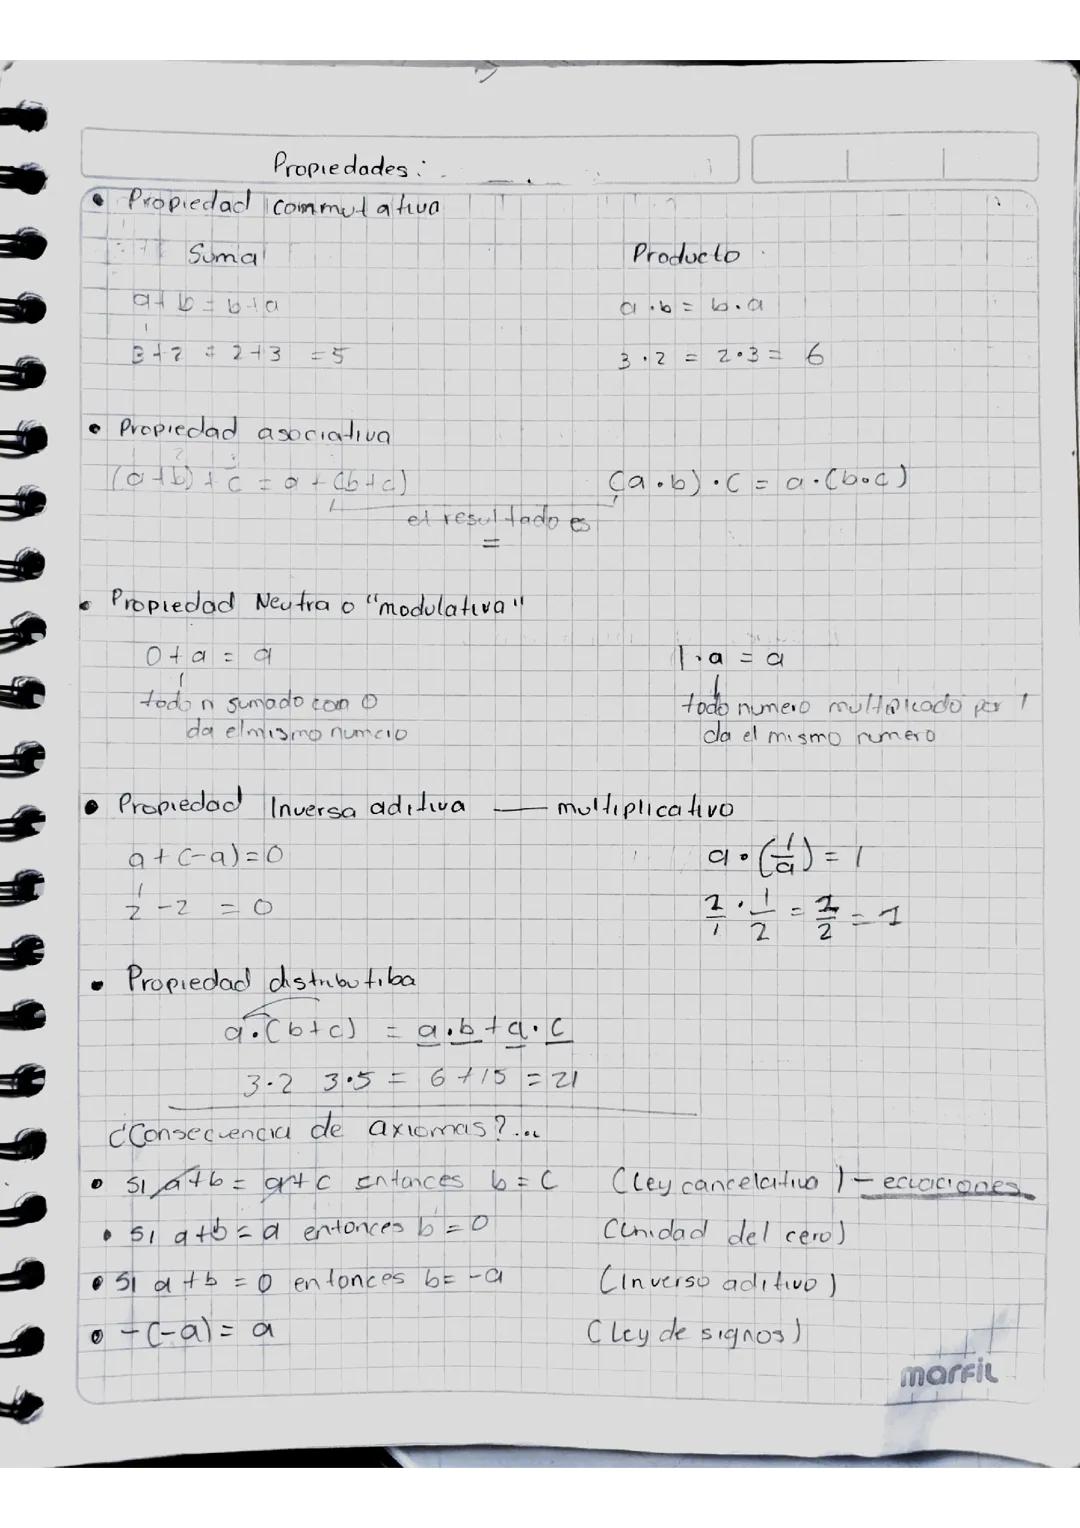 Propiedades:
• Propiedad commutativa
Suma Producto
a+b=b+a a·b= b.a
3+2 = 2+3 =5 3·2 = 2·3= 6
• Propiedad asociativa
(a+b)+c = a+(b+c) (a·b)·c = a·(b·c)
el resultado es
=
• Propiedad Neutra o "modulativa"
0+a = a 1·a = a
todo n sumado con 0 todo numero multiplicado por 1
da el mismo numero da el mismo numero
• Propiedad Inversa aditiva — multiplicativo
a+(-a)=0 a·(1/a) = 1
2-2 =0 2/1 · 1/2 = 2/2 = 1
• Propiedad distributiba
a·(b+c) = a·b+a·c
3·2 3·5 = 6+15 =21
¿Consecuencia de axiomas?...
• Si a+b = a+c entonces b=c (Ley cancelativa) - ecuaciones
• Si a+b = a entonces b=0 (Unidad del cero)
• Si a+b = 0 entonces b= -a (Inverso aditivo)
• -(-a)= a (Ley de signos)
marfil